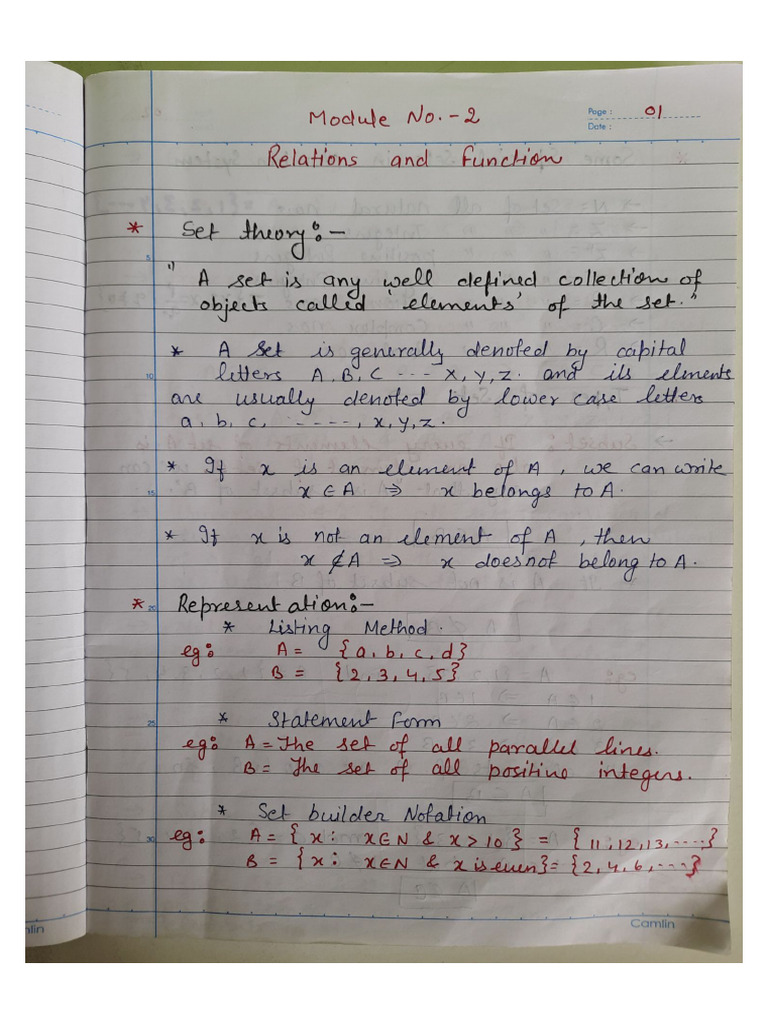 Module No.-2
Page : 01
Date :
Relations and Function
* Set theory:-
" A set is any well defined collection of
objects called 'elements' of the set."
* A set is generally denoted by capital
letters A, B, C --- X, Y, Z. and its elments
are usually denoted by lower case letters
a, b, c, - - - - -, x, y, z.
* If x is an element of A, we can write
x ∈ A ⇒ x belongs to A.
* If x is not an element of A, then
x ∉ A ⇒ x does not belong to A.
* Representation:-
* Listing Method.
eg: A = {a, b, c, d}
B = {2, 3, 4, 5}
* Statement Form
eg: A = The set of all parallel lines.
B = The set of all positive integers.
* Set builder Notation
eg: A = { x : x∈N & x>10 } = { 11, 12, 13, ----}
B = { x : x∈N & x is even} = {2, 4, 6, ----}
Camlin